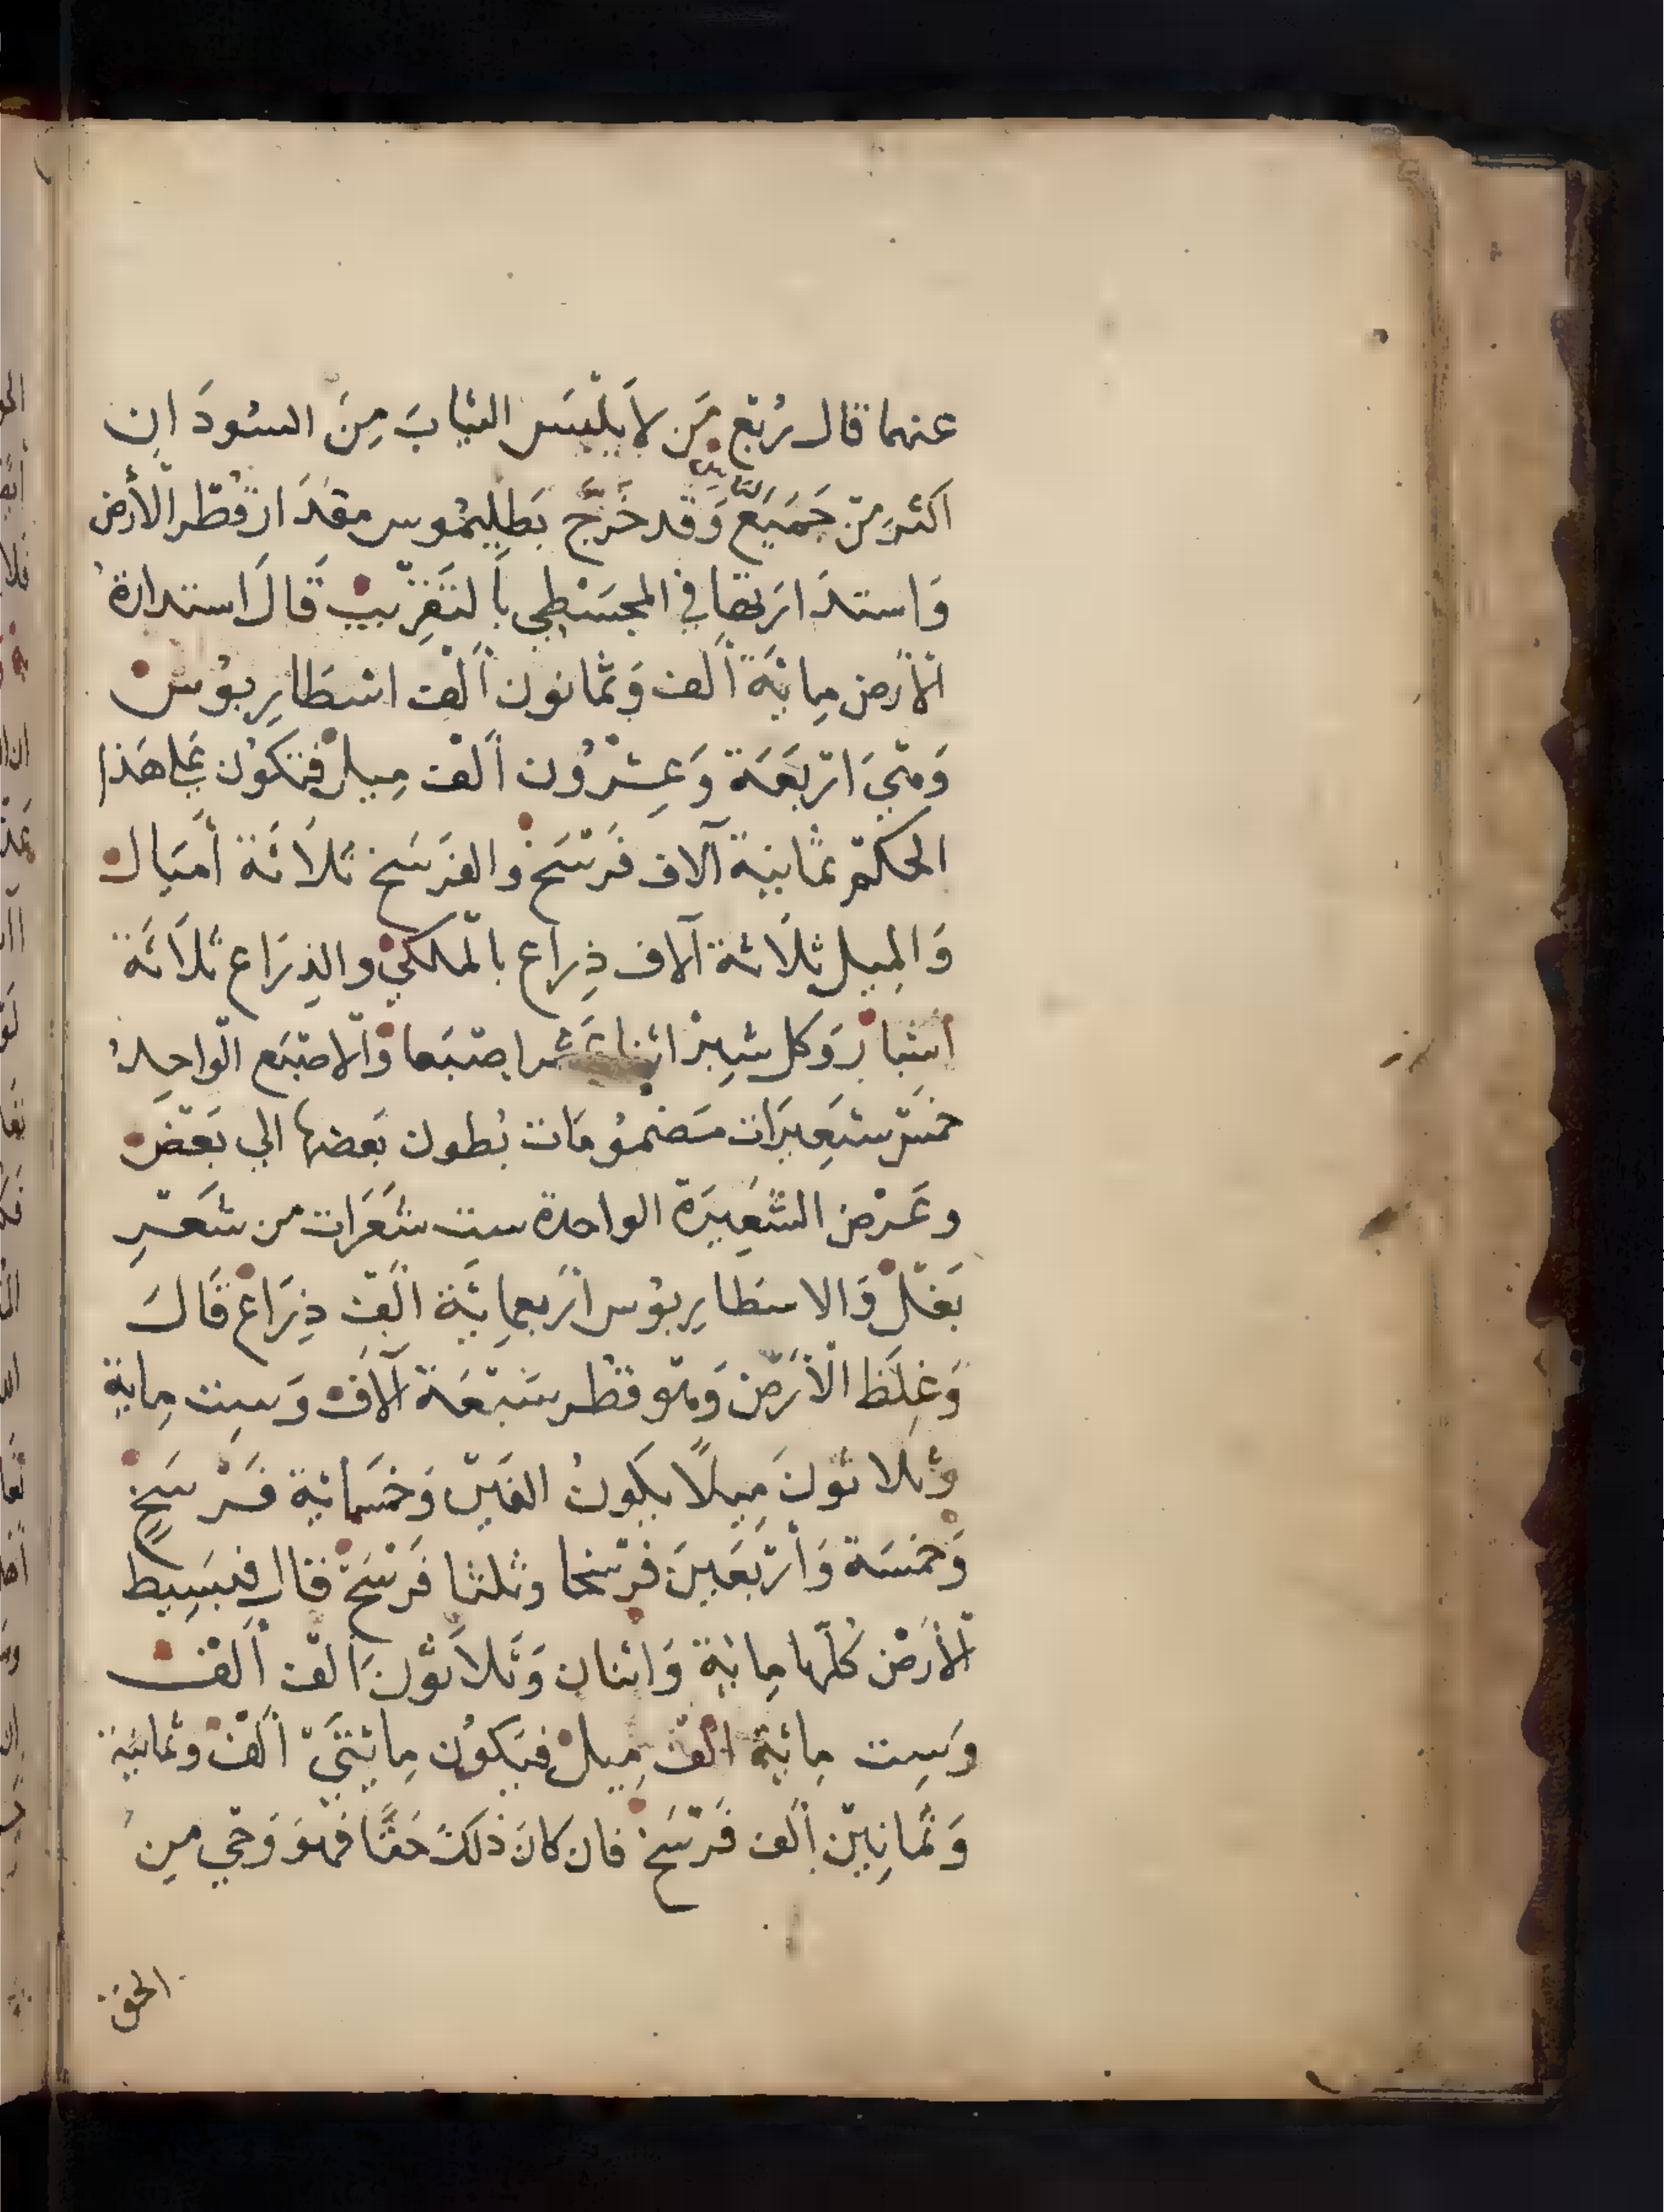 عنهما قال رُبْع مَن لاَ يَلْبَس الثيابَ مِنَ السُودَان
اكثر مِنْ جَمَيْع النَّاس وَقد خَرَّج بَطلِيمُوس مقدَار قُطْر الْأَرض
وَاستدَارَتها في المجسَطِي بِالتَقرِيب قَالَ استدارة
الْأرض مِائَة أَلف وَثمانون أَلف اسْطَارِيوُس
وَهِيَ ارْبَعَة وَعِشْرُون أَلْف مِيل فتكوُن عَلى هَذا
الحكم ثمانية آلاف فَرْسَخ والفَرسَخ ثلاَثَة أَميَال
وَالمِيل ثلَاثة آلاف ذِراع بالْملكيْ والذِرَاع ثلَاثَة
أَشْبَارْ وَكل شِبرْ اثنا عَشر اصْبَعا وَالاصْبَع الْواحِدُ
خمسْ شَعِيرَات مَضمُومَات بُطون بَعضها الي بَعْض
وعَرْض الشَّعِيرَة الواحدة ست شَعَرَات من شَعَرِ
بَغْلْ وَالاسَطارِيوُس أرْبعمِائَة أَلْف ذِرَاعْ قَالَ
وَغِلَظ الْأَرْض وَهْو قُطْر سَبْعَة آلَاف وَسِت مِاية
وَثلاثوُنَ مِيلًا يكوُن الفَيْن وَخمسَمائية فَرْسَخٍ
وَخَمسَة وَأَرْبَعَينَ فرْسَخا وثلثا فَرْسَخْ قال فبَسِيط
الْأَرْض كُلّها مِائَة وَاثنان وَثَلاَثوُنَ الْف أَلْف
وَسِت مِائَة الْف مِيلْ فيَكوُن مِائتَيْ أَلْف وثمانية
وَثمَانِيْن أَلف فَرْسَخْ فان كانَ ذلكَ حَقًّا فَهْوَ وَحْي مِن
الحق